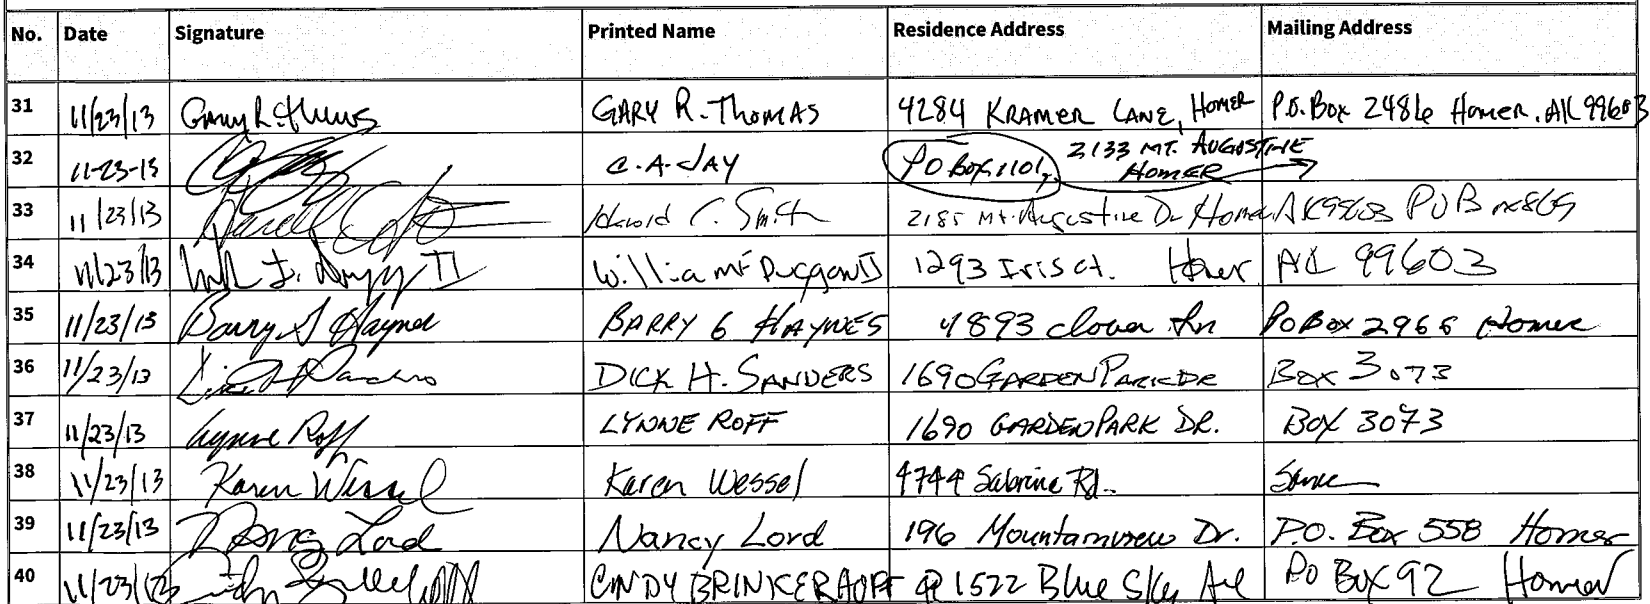 No. Date Signature Printed Name Residence Address Mailing Address
31 11/23/13 GARY R. THOMAS 4284 KRAMER LANE, HOMER P.O. Box 2486 Homer, AK 99603
32 11-23-13 C.A. JAY PO Box 1101, 2133 MT. AUGUSTINE
HOMER
33 11/23/13 C. Smith 2185 Mt. Augustine Dr Homer AK 99603 POB
34 11/23/13 William F Duggan II 1293 Iris Ct. Homer AK 99603
35 11/23/13 Barry G Haynes BARRY G HAYNES 4893 Clover Ln PO Box 2966 Homer
36 11/23/13 DICK H. SANDERS 1690 GARDEN PARK DR Box 3073
37 11/23/13 Lynne Roff LYNNE ROFF 1690 GARDEN PARK DR. BOX 3073
38 11/23/13 Karen Wessel Karen Wessel 4744 Sabrina Rd. Same
39 11/23/13 Nancy Lord Nancy Lord 196 Mountainview Dr. P.O. Box 558 Homer
40 11/23/13 CINDY BRINKERHOFF 1522 Blue Sky Ave PO Box 92 Homer